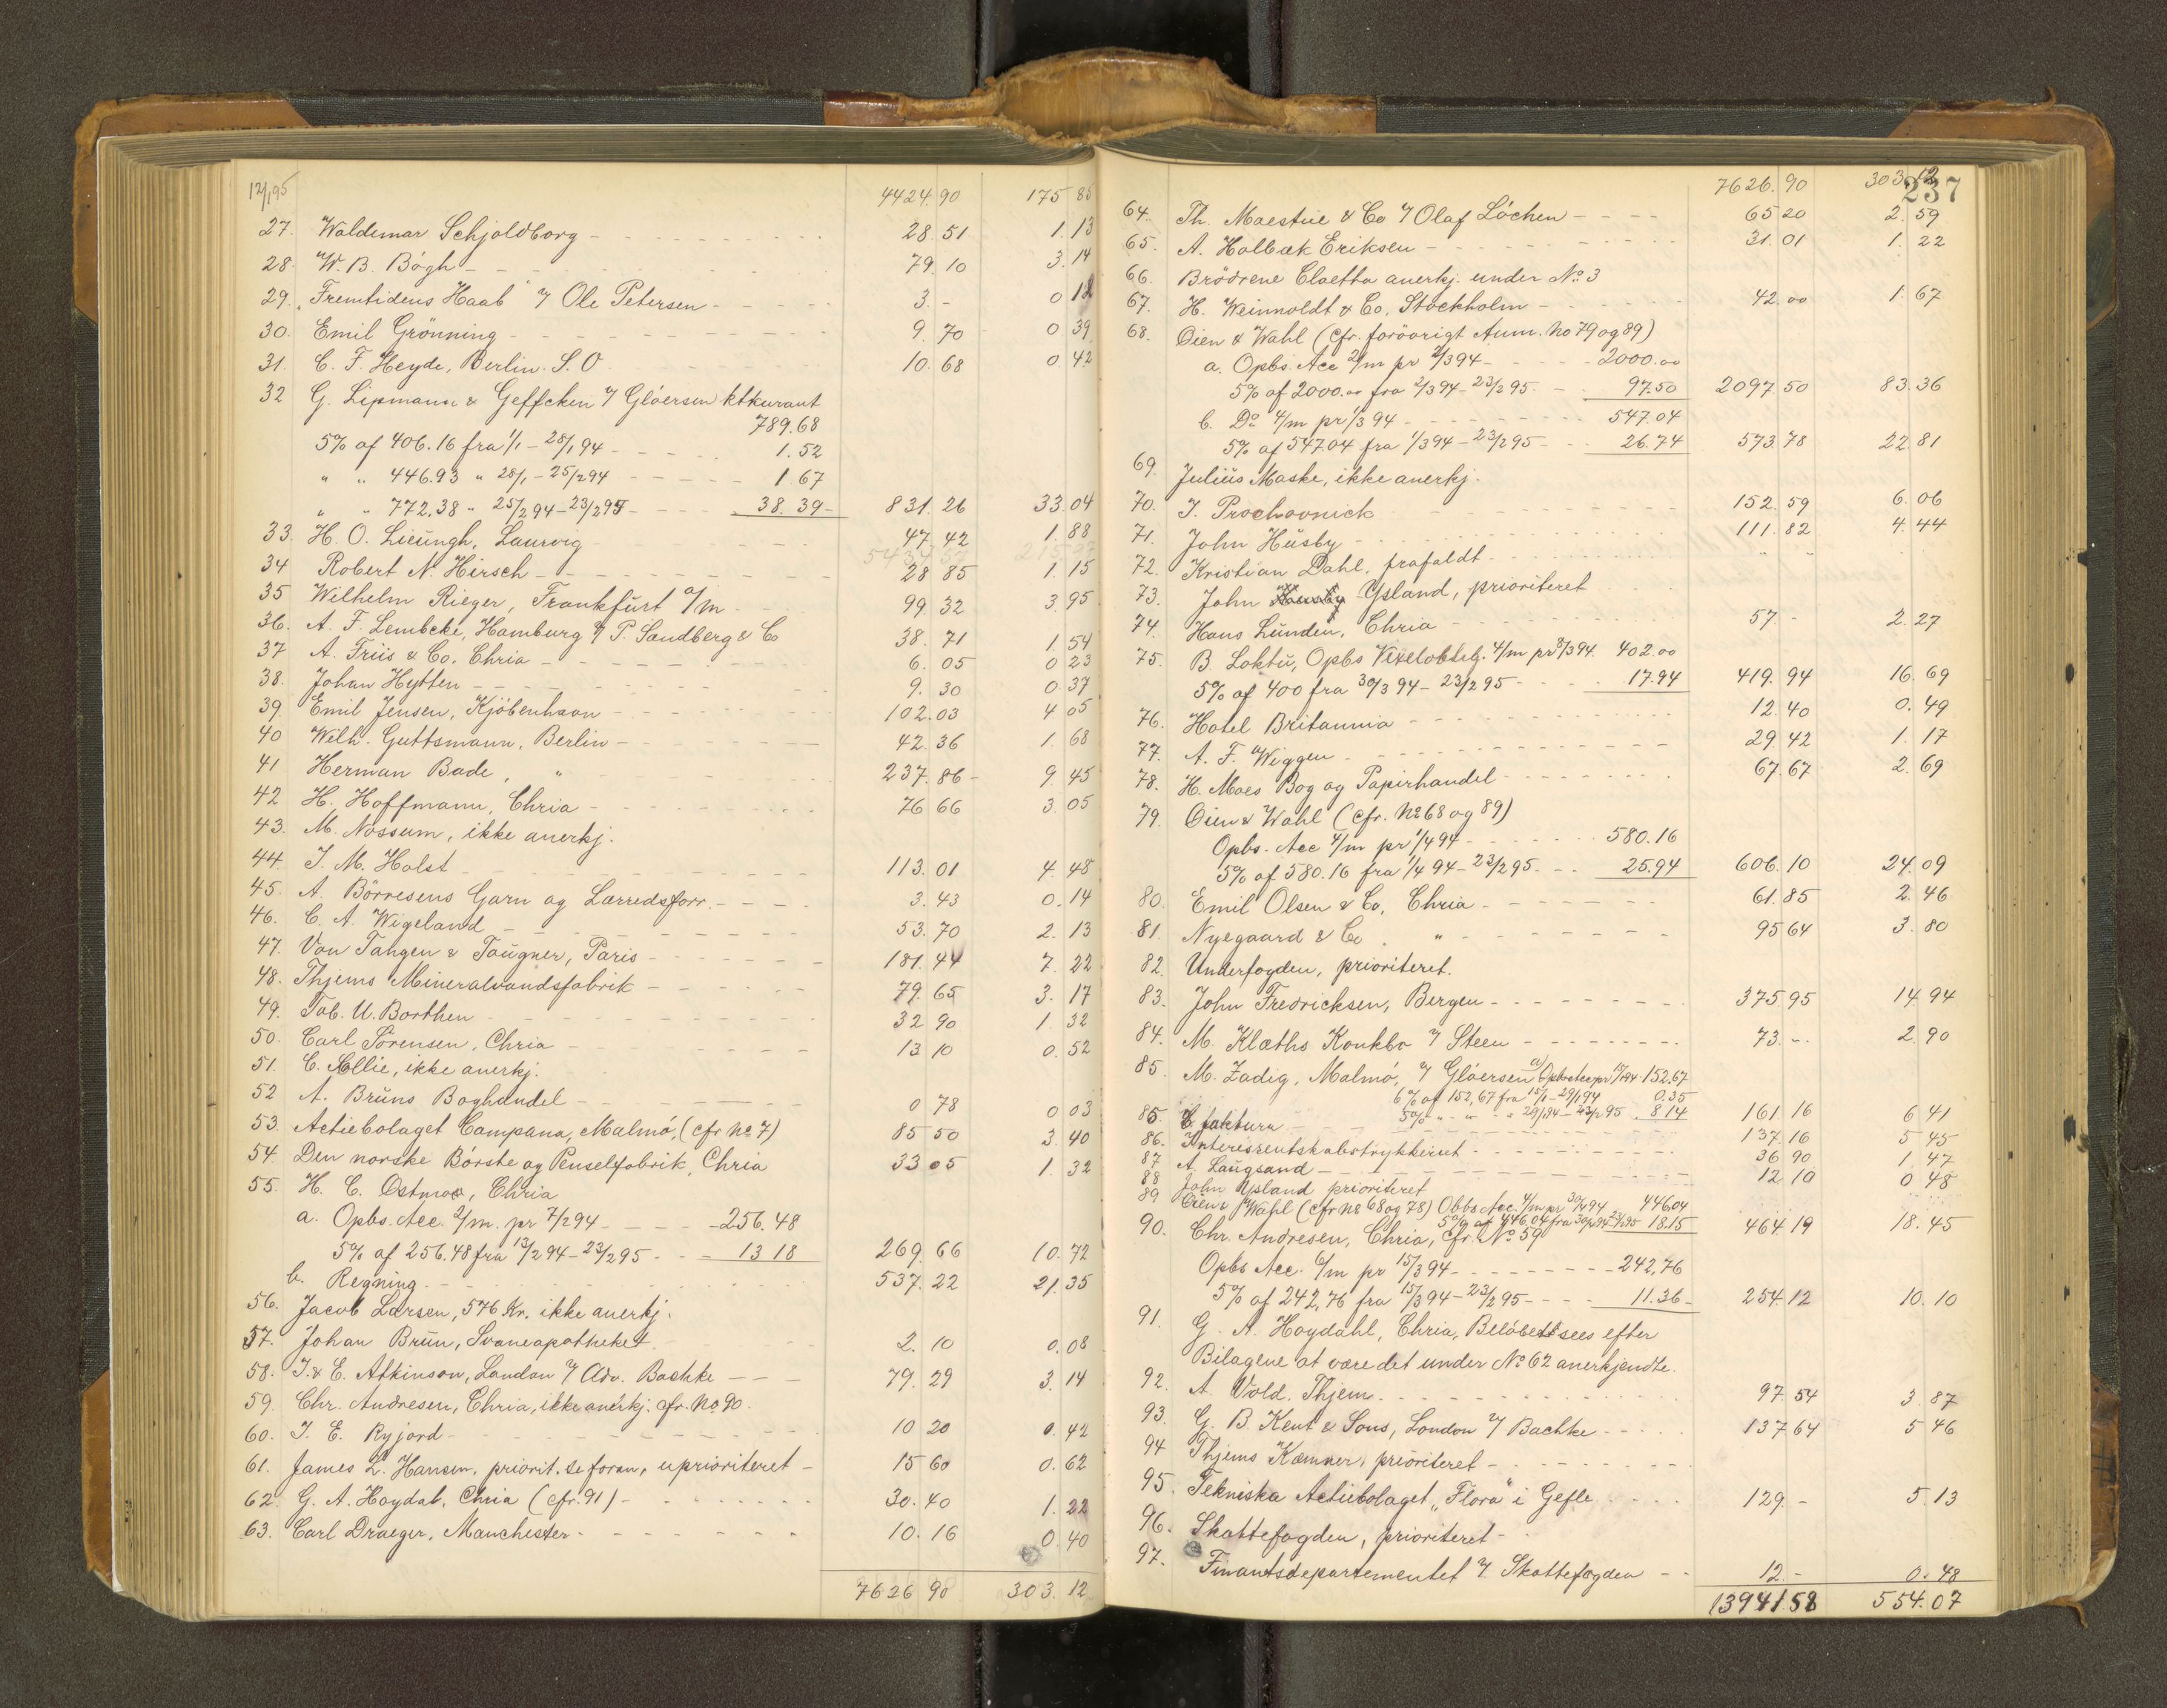 12/1 95 4424.90 175 85
27. Waldemar Schjoldborg - 28.51 1.13
28. W. B. Bögh - 79.10 3.14
29. "Fremtidens Haab" v/ Ole Petersen - 3.- 0 12
30. Emil Grönning - 9.70 0 39
31. C. F. Heyde, Berlin. S.O. 10.68 0.42
32 G. Lipmann & Geffcken v/ Glöersen ktkurant
789.68
5% af 406.16 fra 1/1 - 28/1 94 - 1.52
" " 446.93 " 28/1 - 25/2 94 - 1.67
" " 772.38 " 25/2 94 - 23/2 95 - 38.39 - 831.26 33.04
33. H. O. Lieungh, Laurvig - 47.42 1.88
34 Robert N. Hirsch - 28 85 1.15
35 Wilhelm Rieger, Frankfurt a/m - 99.32 3.95
36. A. F. Lembcke, Hamburg v/ P. Sandberg & Co 38.71 1.54
37 A. Friis & Co. Chria - 6.05 0 23
38. Johan Hytten - 9.30 0.37
39. Emil Jensen, Kjöbenhavn - 102.03 4 05
40 Wilh. Guttsmann, Berlin - 42.36 1.68
41 Herman Bade, " 237.86 - 9.45
42 H. Hoffmann, Chria - 76 66 3.05
43. M. Nossum, ikke anerkj.
44. J. M. Holst - 113.01 4.48
45. A. Börresens Garn og Lærredsforr. - 3.43 0.14
46. C. A. Wigeland - 53.70 2.13
47. Von Tangen & Taugner, Paris - 181.44 7.22
48. Thjems Mineralvandsfabrik - 79.65 3.17
49. Tob. U. Borthen - 32 90 1.32
50. Carl Sörensen, Chria - 13 10 0.52
51. C. Ællie, ikke anerkj.
52 A. Bruns Boghandel - 0 78 0 03
53. Actiebolaget Campana, Malmö, (cfr No 7) 85 50 3.40
54. Den norske Börste og Penselfabrik, Chria 33 05 1.32
55. H. C. Ostmoe, Chria
a. Opbs. Acc. 2/m. pr 7/2 94 - 256.48
5% af 256.48 fra 13/2 94 - 23/2 95 - 13 18 269.66 10.72
b. Regning - 537.22 21.35
56. Jacob Larsen, 576 Kr. ikke anerkj.
57. Johan Brun, Svaneapotheket 2.10 0.08
58. J. & E. Atkinson, London v/ Adv. Bachke - 79.29 3.14
59. Chr. Andresen, Chria, ikke anerkj. cfr. No 90.
60. J. E. Ryjord - 10 20 0.42
61. James L. Hansen, priorit. se foran, uprioriteret - 15 60 0.62
62. G. A. Hoydal, Chria (cfr. 91) - 30.40 1.22
63. Carl Draeger, Manchester - 10.16 0.40
7626 90 303.12
237
7626.90 303.12
64. Th. Maestue & Co v/ Olaf Löchen - 65 20 2.59
65. A. Holbæk Eriksen - 31.01 1.22
66. Brödrene Cloetta anerkj. under No 3
67. H. Weinnoldt & Co, Stockholm - 42.00 1.67
68. Oien & Wahl (cfr. forövrigt Anm. No 79 og 89)
a. Opbs. Acc 2/m pr 2/3 94 - 2000.00
5% af 2000.00 fra 2/3 94 - 23/2 95 - 97.50 2097.50 83.36
b. Do 4/m pr 1/3 94 - 547.04
5% af 547.04 fra 1/3 94 - 23/2 95 - 26.74 573.78 22.81
69. Julius Maske, ikke anerkj.
70. J. Prochovnick - 152.59 6.06
71. John Husby - 111.82 4.44
72. Kristian Dahl, frafaldt - " "
73. John Husby Ysland, prioriteret
74. Hans Lunden, Chria - 57 - 2.27
75. B. Loktu, Opbs Vexelobtilg. 4/m pr 3/3 94. 402.00
5% af 400 fra 30/3 94 - 23/2 95 - 17.94 419.94 16.69
76. Hotel Britannia - 12.40 0.49
77. A. F. Wiggen - 29.42 1.17
78. H. Moes Bog og Papirhandel - 67.67 2.69
79. Oien & Wahl (cfr. No 68 og 89)
Opbs. Acc 4/m pr 1/4 94 - 580.16
5% af 580.16 fra 1/4 94 - 23/2 95 - 25.94 606.10 24.09
80. Emil Olsen & Co, Chria - 61.85 2.46
81. Nyegaard & Co. " - 95 64 3.80
82. Underfogden, prioriteret.
83. John Fredricksen, Bergen - 375 95 14.94
84. M. Klæths Konkbo v/ Steen - 73.- 2.90
85. M. Zadig, Malmö, v/ Glöersen a) Opbs Acc pr 15/1 94 - 152.67
6% af 152,67 fra 15/1 - 29/1 94 0.35
5% " " " 29/1 94 - 23/2 95 . 8.14 161.16 6 41
85 b faktura - 137.16 5 45
86. Interessentskabstrykkeriet - 36 90 1.47
87 A. Laugsand - 12 10 0 48
88 John Ysland prioriteret
89 Oien & Wahl (cfr No 68 og 78) Obbs Acc. 4/m pr 30/4 94 446.04
5% af 446.04 fra 30/4 94 - 23/2 95 18.15 464.19 18.45
90. Chr. Andresen, Chria, cfr. No 59
Opbs Acc. 6/m pr 15/3 94 - 242,76
5% af 242,76 fra 15/3 94 - 23/2 95 - 11.36 - 254.12 10.10
91. G. A. Hoydahl, Chria, Belöbet sees efter
Bilagene at være det under No 62 anerkjendte.
92. A. Vold. Thjem - 97.54 3.87
93. G. B. Kent & Sons, London v/ Bachke - 137 64 5 46
94 Thjems Kæmner, prioriteret -
95. Tekniska Actiebolaget "Flora" i Gefle 129.- 5.13
96. Skattefogden, prioriteret -
97. Finantsdepartementet v/ Skattefogden - 12.- 0.48
13941.58 554.07